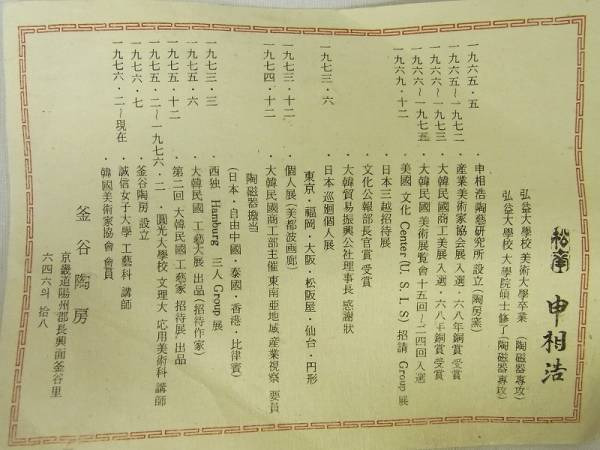 申相浩
弘益大學校 美術大學卒業 (陶磁器專攻)
弘益大學校 大學院碩士修了 (陶磁器專攻)
一九六五・五 ・申相浩 陶藝硏究所 設立 (陶房窯)
一九六五~一九七二 ・産業美術家協会展入選・六八年銅賞受賞
一九六六~一九七三 ・大韓民國商工美展入選・六八年銅賞受賞
一九六六~一九七五 ・大韓民國 美術展覧會 十五回~二四回入選
一九六九・十二 ・美國 文化 Center (U.S.I.S) 招請 Group 展
・日本三越招待展
・文化公報部長官賞 受賞
・大韓貿易振興公社理事長 感謝狀
一九七三・六 ・日本 巡廻個人展
東京・福岡・大阪・松阪屋・仙台・円形
一九七三・十二 ・個人展(美都波画廊)
一九七四・十二 ・大韓民國商工部主催 東南亜地域 産業視察 要員
陶磁器擔当
(日本・自由中國・泰國・香港・比律賓)
一九七三・三 ・西独 Hamburg 三人 Group 展
一九七五・六 ・大韓民國 工藝大展 出品(招待作家)
一九七五・十二 ・第二回 大韓民國 工藝家 招待展 出品
一九七五・二~一九七六・二 ・圓光大學校 文理大 応用美術科 講師
一九七六・七 ・釜谷陶房 設立
一九七六・二~現在 ・誠信女子大學 工藝科 講師
・韓國美術家協會 會員
釜谷陶房
京畿道陽州郡長興面釜谷里
六四六의 拾八